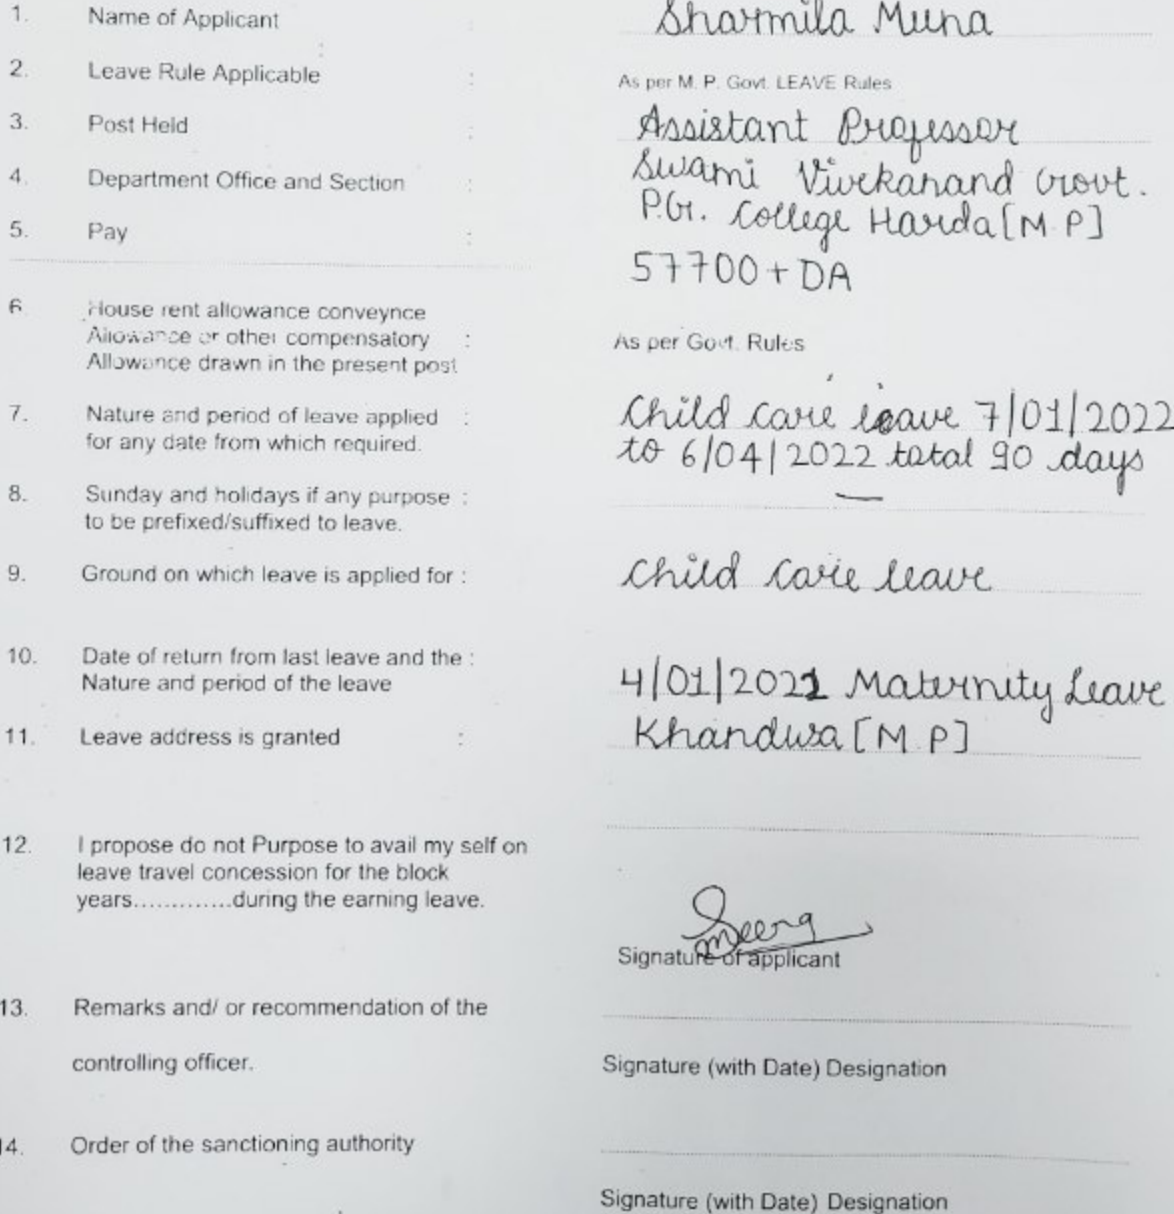 1. Name of Applicant : Sharmila Muna
2. Leave Rule Applicable : As per M. P. Govt. LEAVE Rules
3. Post Held : Assistant Professor
4. Department Office and Section : Swami Vivekanand Govt.
P.G. College Harda [M.P]
5. Pay : 57700 + DA
6. House rent allowance conveynce
Allowance or other compensatory : As per Govt. Rules
Allowance drawn in the present post
7. Nature and period of leave applied : Child care leave 7/01/2022
for any date from which required. to 6/04/2022 total 90 days
8. Sunday and holidays if any purpose : —
to be prefixed/suffixed to leave.
9. Ground on which leave is applied for : Child care leave
10. Date of return from last leave and the :
Nature and period of the leave 4/01/2021 Maternity Leave
11. Leave address is granted : Khandwa [M.P]
12. I propose do not Purpose to avail my self on
leave travel concession for the block
years.............during the earning leave.
Signature of applicant
13. Remarks and/ or recommendation of the
controlling officer. Signature (with Date) Designation
14. Order of the sanctioning authority
Signature (with Date) Designation